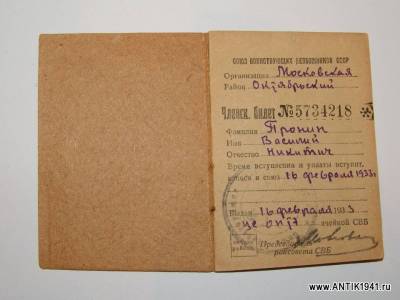 СОЮЗ ВОИНСТВУЮЩИХ БЕЗБОЖНИКОВ СССР
Организация Московская
Район Октябрьский
Членск. билет №5734218
Фамилия Пронин
Имя Василий
Отчество Никитич
Время вступления и уплаты вступит.
взноса в союз 16 февраля 1933 г.
Выдан 16 февраля 1933
ячейкой СВБ
Председ.
райсовета СВБ
www.ANTIK1941.ru